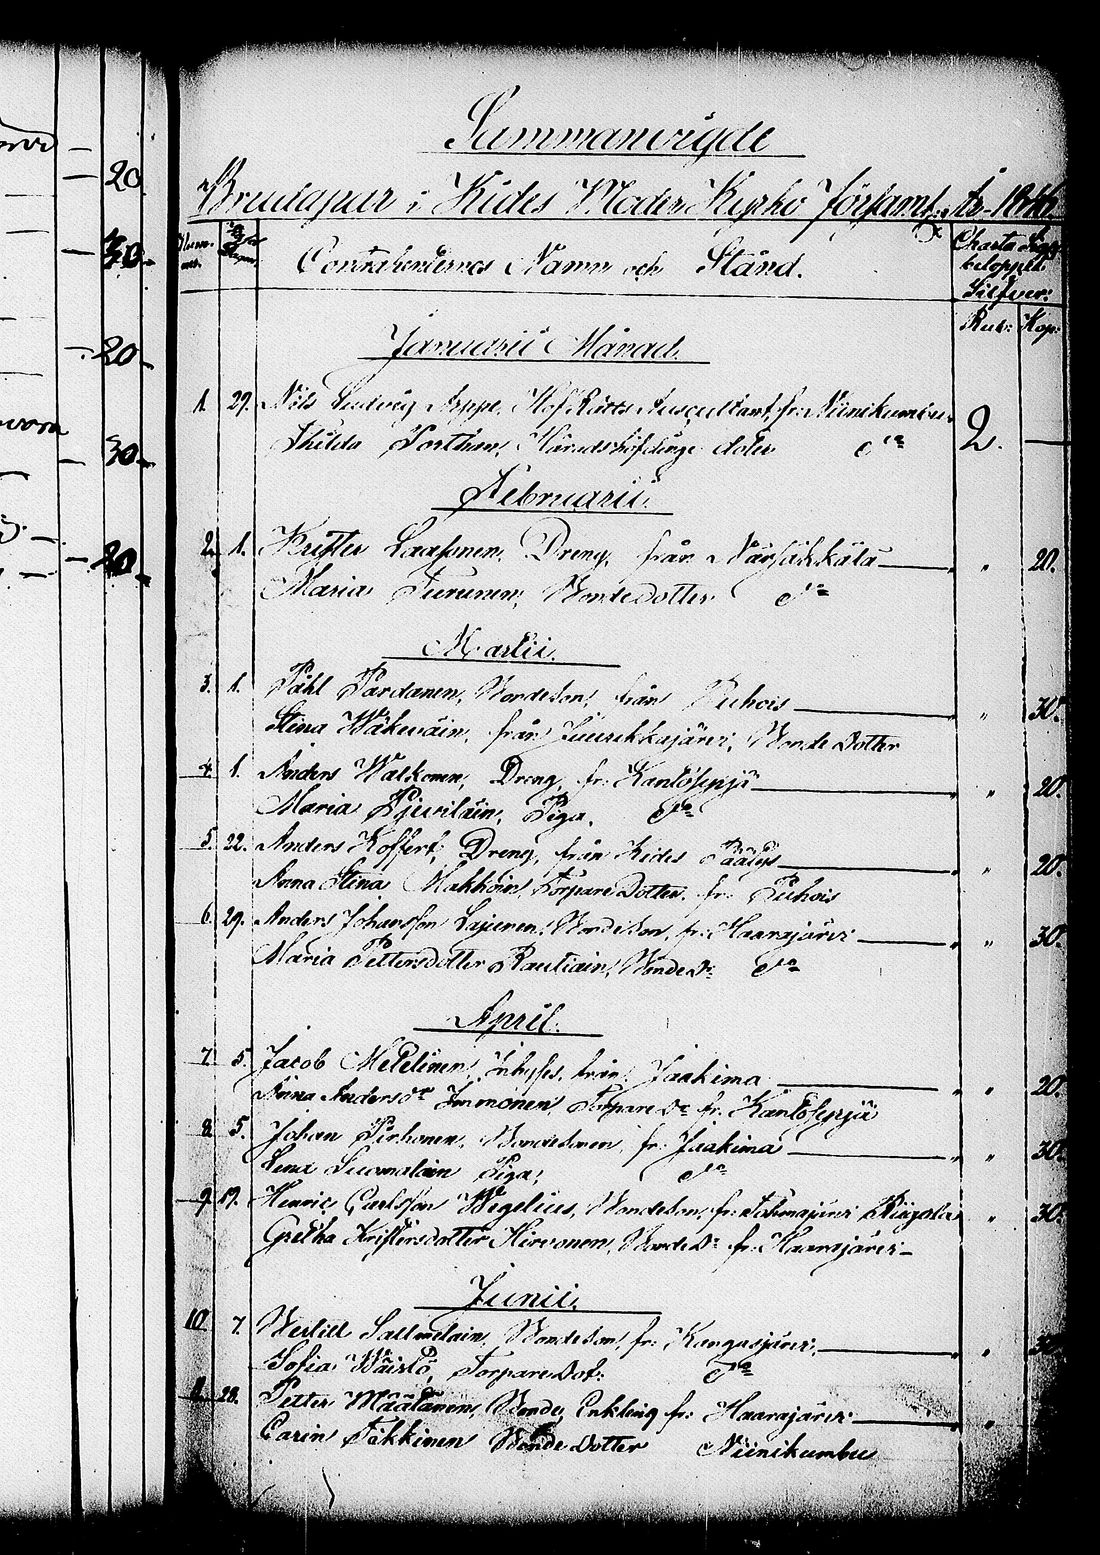 20
30
20
30
20
Sammanvigde
Brudapar i Kides Moder Kyrko Församl: År 1846
Contrahenternes Namn och Stånd.
Charta Sigg
beloppet
Silfver:
Rub: Kop:
Januarii Månad.
1. 29. Nils Ludvig Arppe, Hof Rätts Auscultant, fr: Niinikumbu
Thilda Porthan, Häradshöfdinge doter do 2. —
Februarii
2. 1. Krister Laasonen, Dreng, från Närsäkkälä — " 20.
Maria Turunen, Bondedotter do
Martii.
3. 1. Påhl Pardanen, Bondeson, från Puhois — " 30.
Stina Wäkeväin, från Juurikkajärvi, Bonde Dotter
4. 1. Anders Walkonen, Dreng, fr: Kantosyrjä — " 20.
Maria Pjeviläin, Piga. do
5. 22. Anders Koffert, Dreng, från Kides Päätys — " 20.
Anna Stina Makkoin, Torpare Dotter, fr: Puhois
6. 29. Anders Johansson Lajunen, Bondeson, fr: Haarajärvi — " 30.
Maria Pettersdotter Rautiain, Bonde Dr do
April.
7. 5. Jacob Meldinen, Inhyses, från Jaakima — " 20.
Anna Andersdr Immonen, Torpare Dr fr. Kantosyrjä
8. 5. Johan Pirhonen, Bondesonen, fr: Jaakima — " 30.
Lena Suomalain Piga, do
9. 19. Henric Carlsson Wegelius, Bondeson, fr: Tohmajärvi Riigala " 30.
Gretha Kristersdotter Hirvonen, Bonde Dr fr: Haarajärvi —
Junii.
10. 7. Bertill Sallmelain, Bondeson, fr: Kangasjärvi, — " 30
Sofia Wäistö, Torpare Dot: do
11. 28. Petter Määtänen, Bonde Enkling fr: Haarajärvi — "
Carin Tikkinen Bonde Dotter Niinikumbu